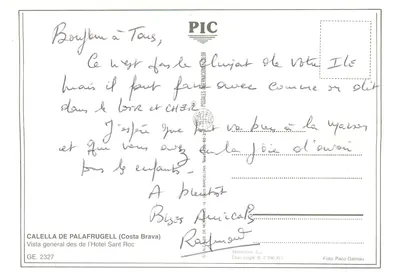 PIC
Bonjour à Tous,
Ce n'est pas le climat de votre Ile
mais il faut faire avec comme on dit
dans le LOIR ET CHER
J'espère que tout va bien à la maison
et que vous avez eu la joie d'avoir
tous les enfants.
A bientôt
Bises Amicales
Raymond
CALELLA DE PALAFRUGELL (Costa Brava)
Vista general des de l'Hotel Sant Roc
GE. 2327
Foto: